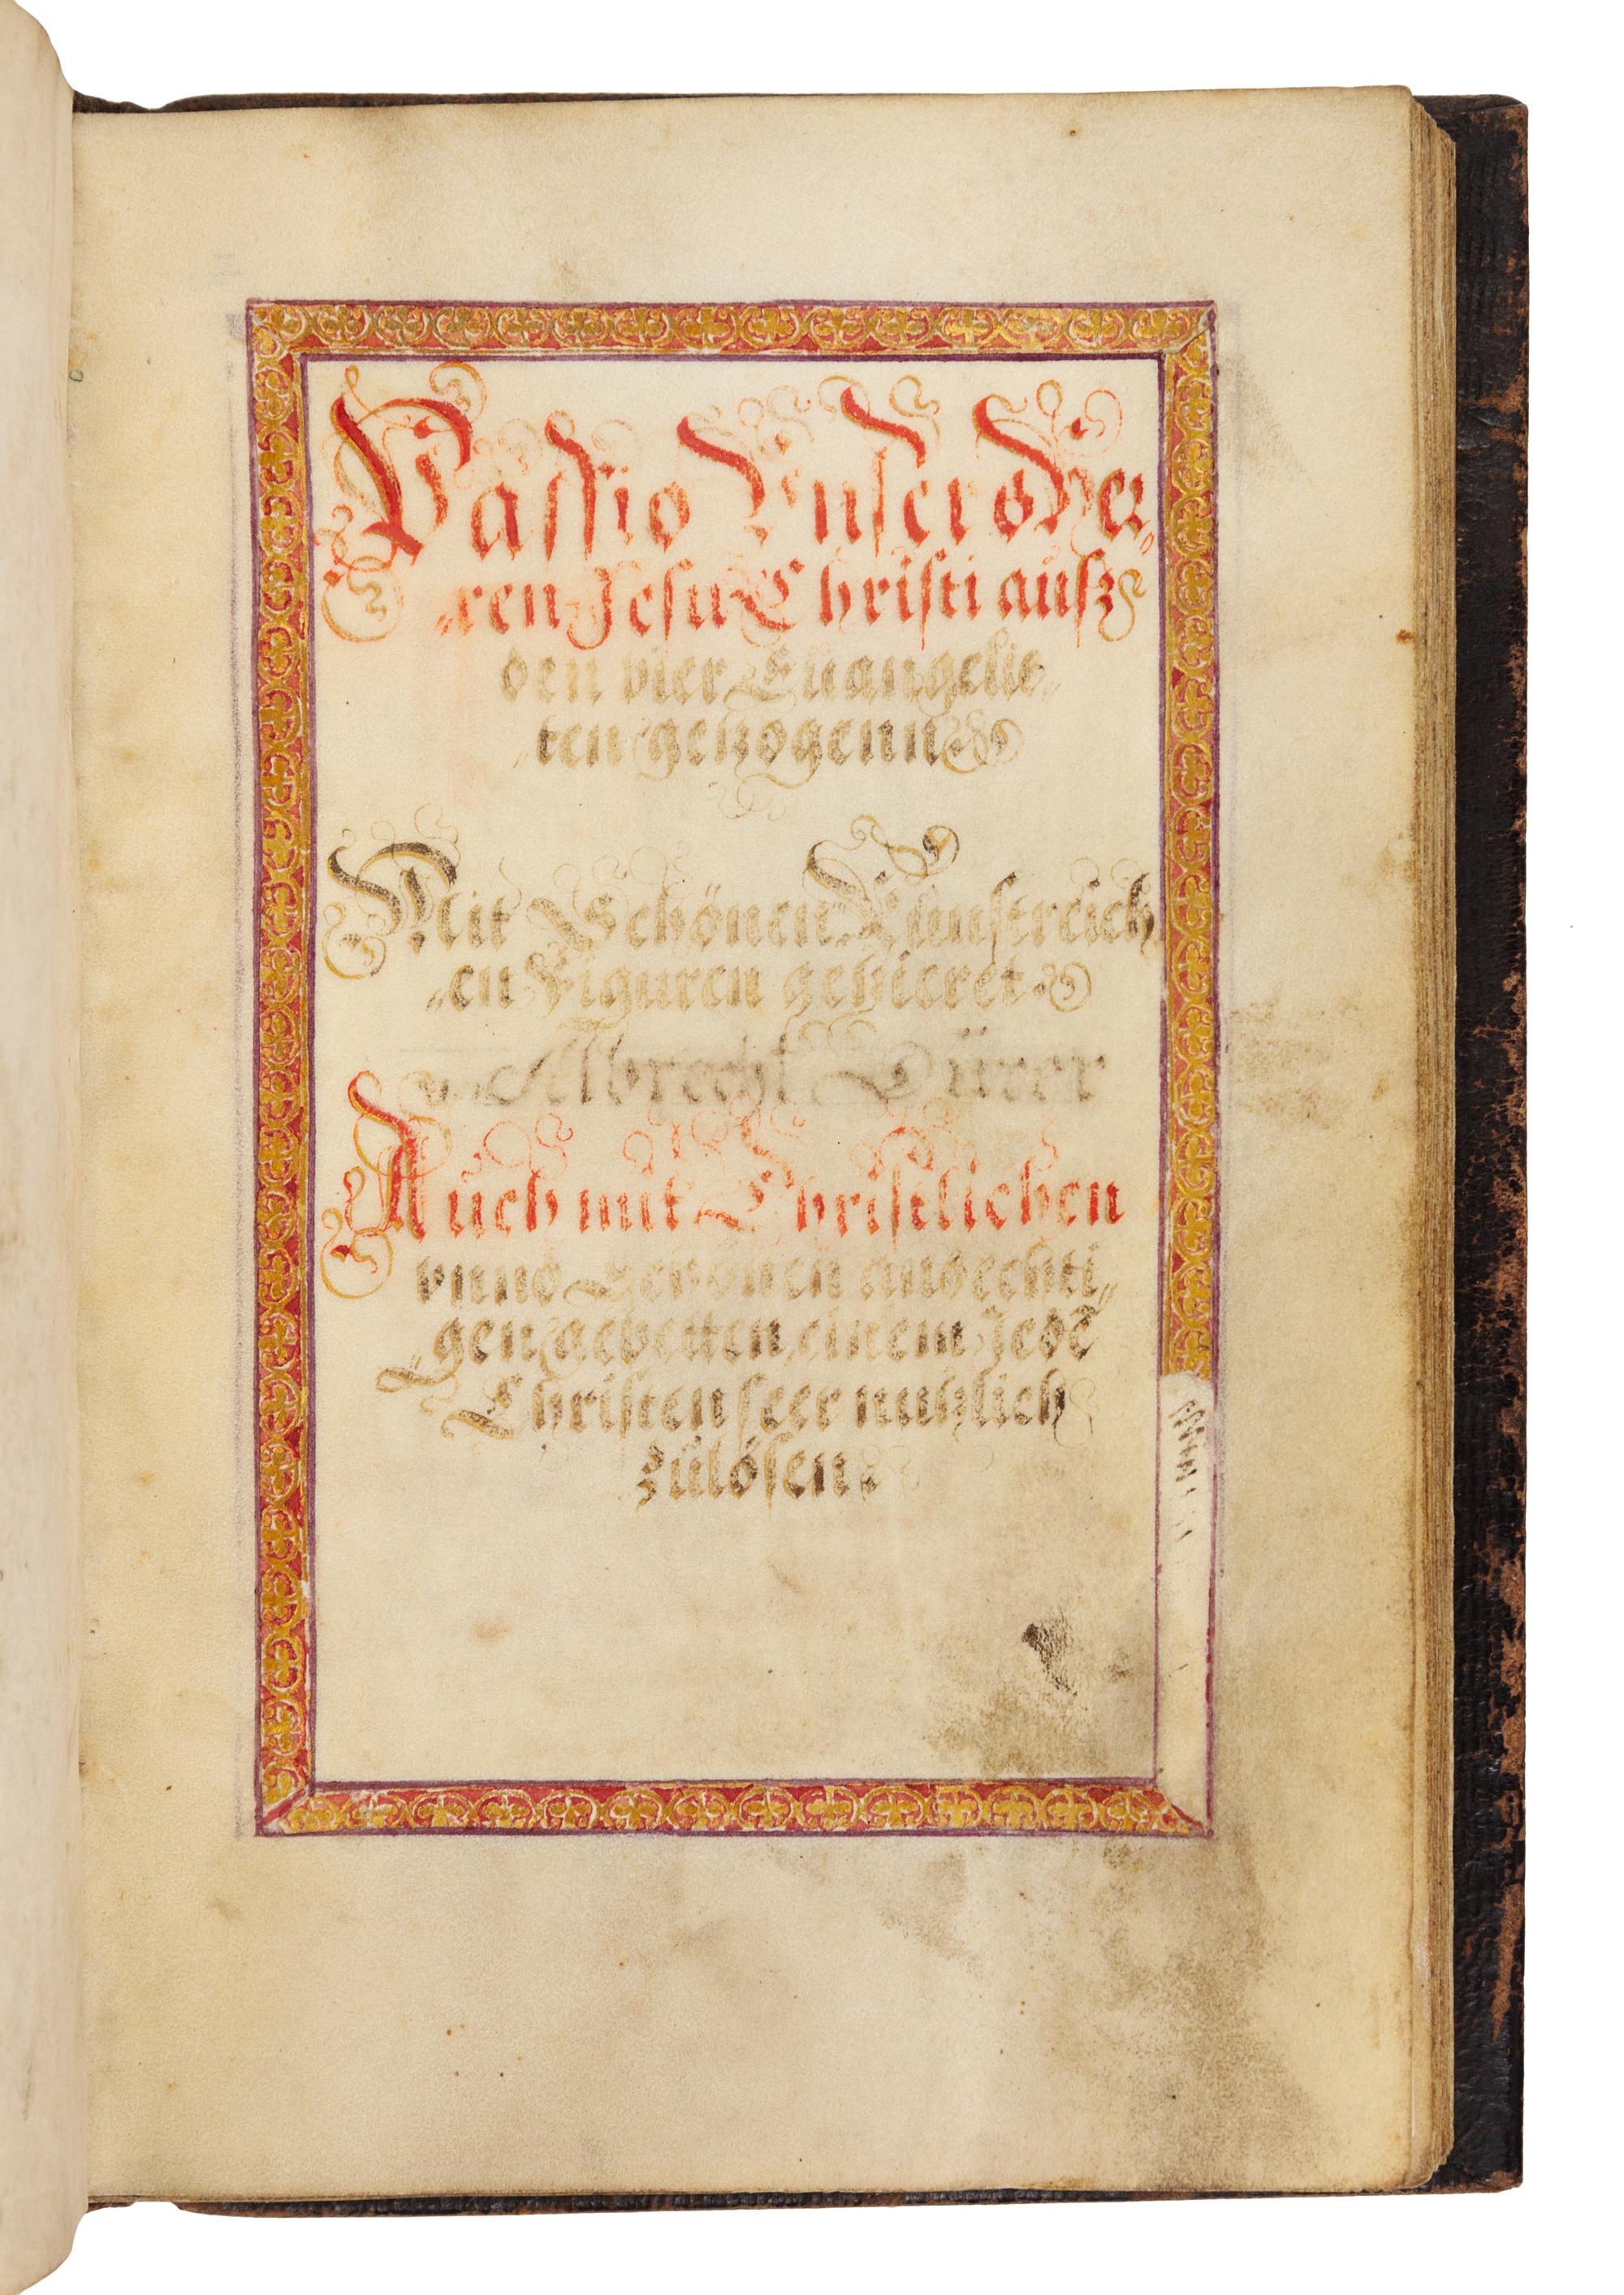 Passio Unsers Her„
„ren Jesu Christi ausz
den vier Euangelis„
„ten getzogenn
Mit Schönen Kunstreich
„en Figuren getzieret
v. Albrecht Dürer
Auch mit Christlichen
vnnd Schönen andechti„
„gen gebetten einem Jedē
Christen seer nutzlich
zůlösen.